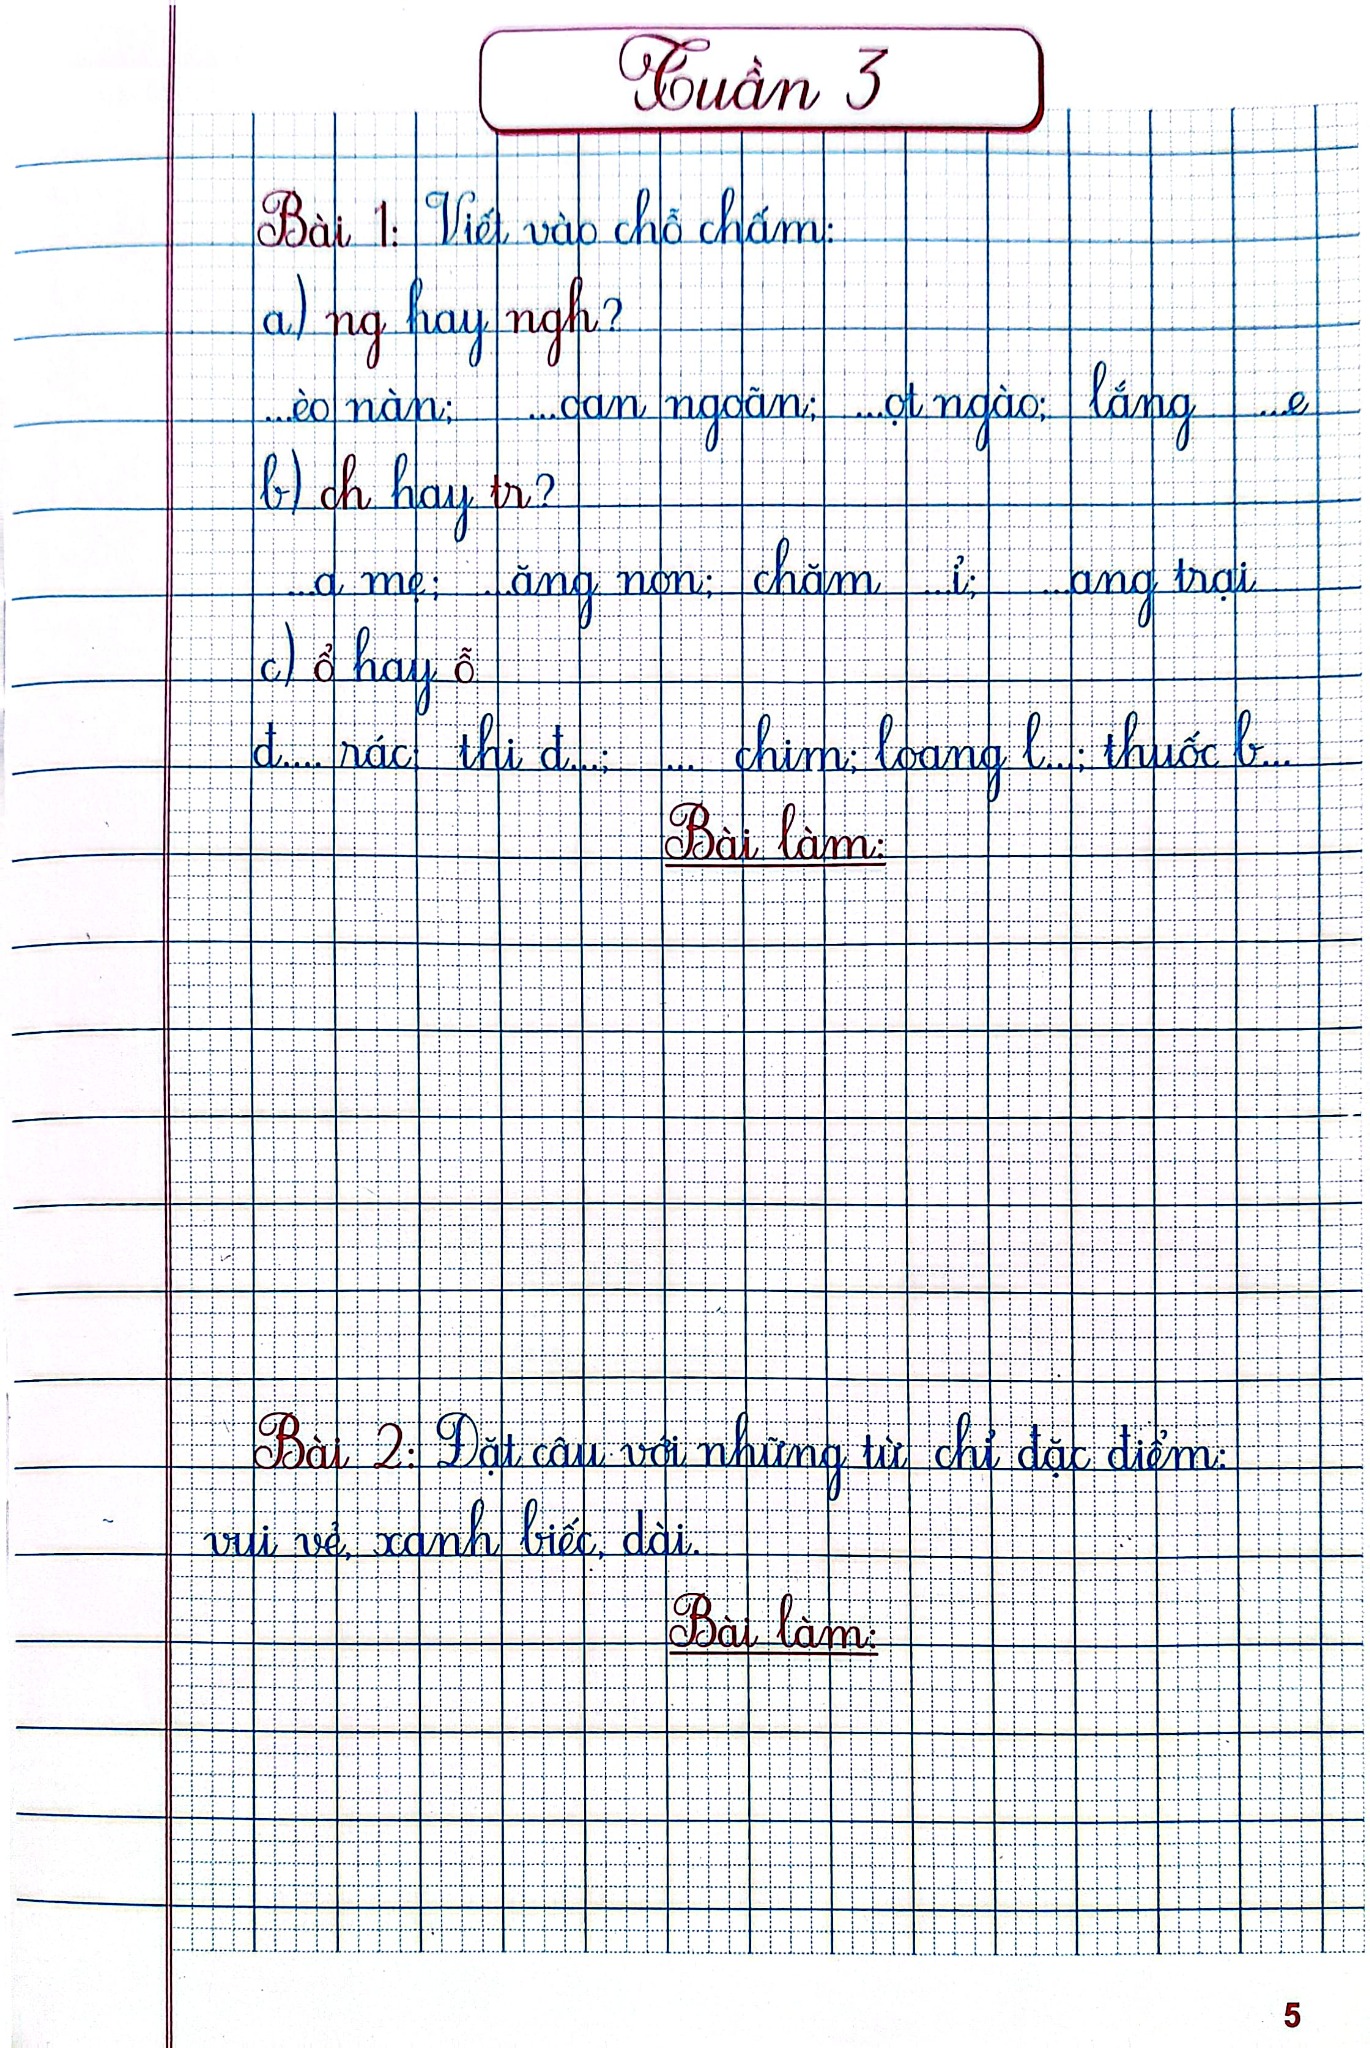 Tuần 3
Bài 1: Viết vào chỗ chấm:
a) ng hay ngh?
...èo nàn; ...oan ngoãn; ...ọt ngào; lắng ...e
b) ch hay tr?
...a mẹ; ...ăng non; chăm ...ỉ; ...ang trại
c) ổ hay ỗ
đ.... rác; thi đ...; ... chim; loang l...; thuốc b...
Bài làm:
Bài 2: Đặt câu với những từ chỉ đặc điểm:
vui vẻ, xanh biếc, dài.
Bài làm:
5